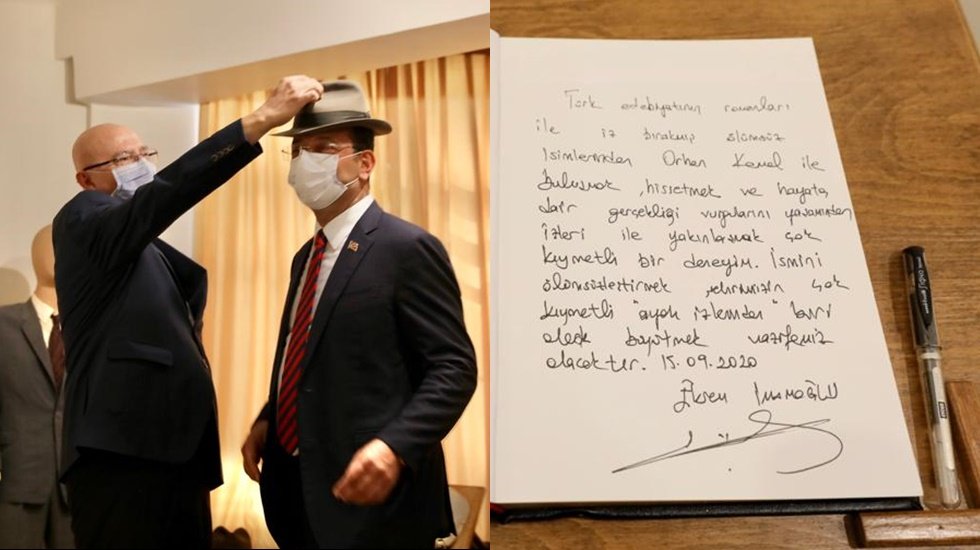 Türk edebiyatının romanları
ile iz bırakıp ölümsüz
isimlerinden Orhan Kemal ile
buluşmak, hissetmek ve hayata
dair gerçekliği vurgularını yaşamından
izleri ile yakınlaşmak çok
kıymetli bir deneyim. İsmini
ölümsüzleştirmek, şehrimizin çok
kıymetli "ayak izlerinden" biri
olarak büyütmek vazifemiz
olacaktır. 15.09.2020
Ekrem İmamoğlu